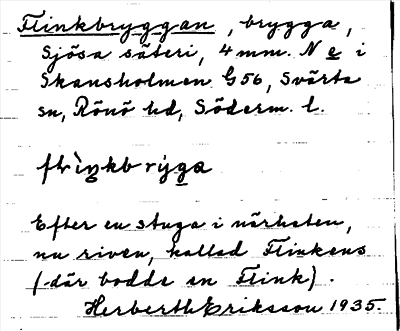 Flinkbryggan, brygga,
Sjösa säteri, 4 mm. N e i
Skansholmen G 56, Svärta
sn, Rönö hd, Söderm. l.
Efter en stuga i närheten,
nu riven, kallad Flinkens
(där bodde en Flink).
Herberth Eriksson 1935.